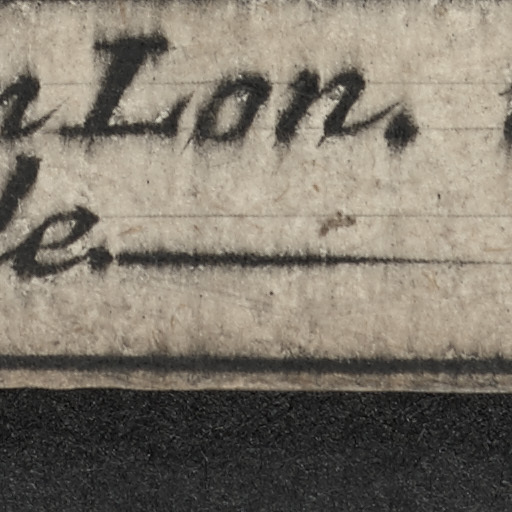 n Lon.
le.